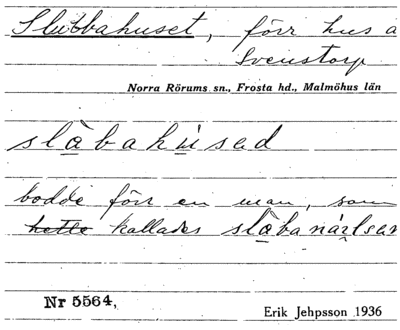 Slubbahuset, förr hus a
Svenstorp
Norra Rörums sn., Frosta hd., Malmöhus län
slàbahúsad
bodde förr en man, som
hette kallades slàbanárlsan
Nr 5564,
Erik Jehpsson 1936